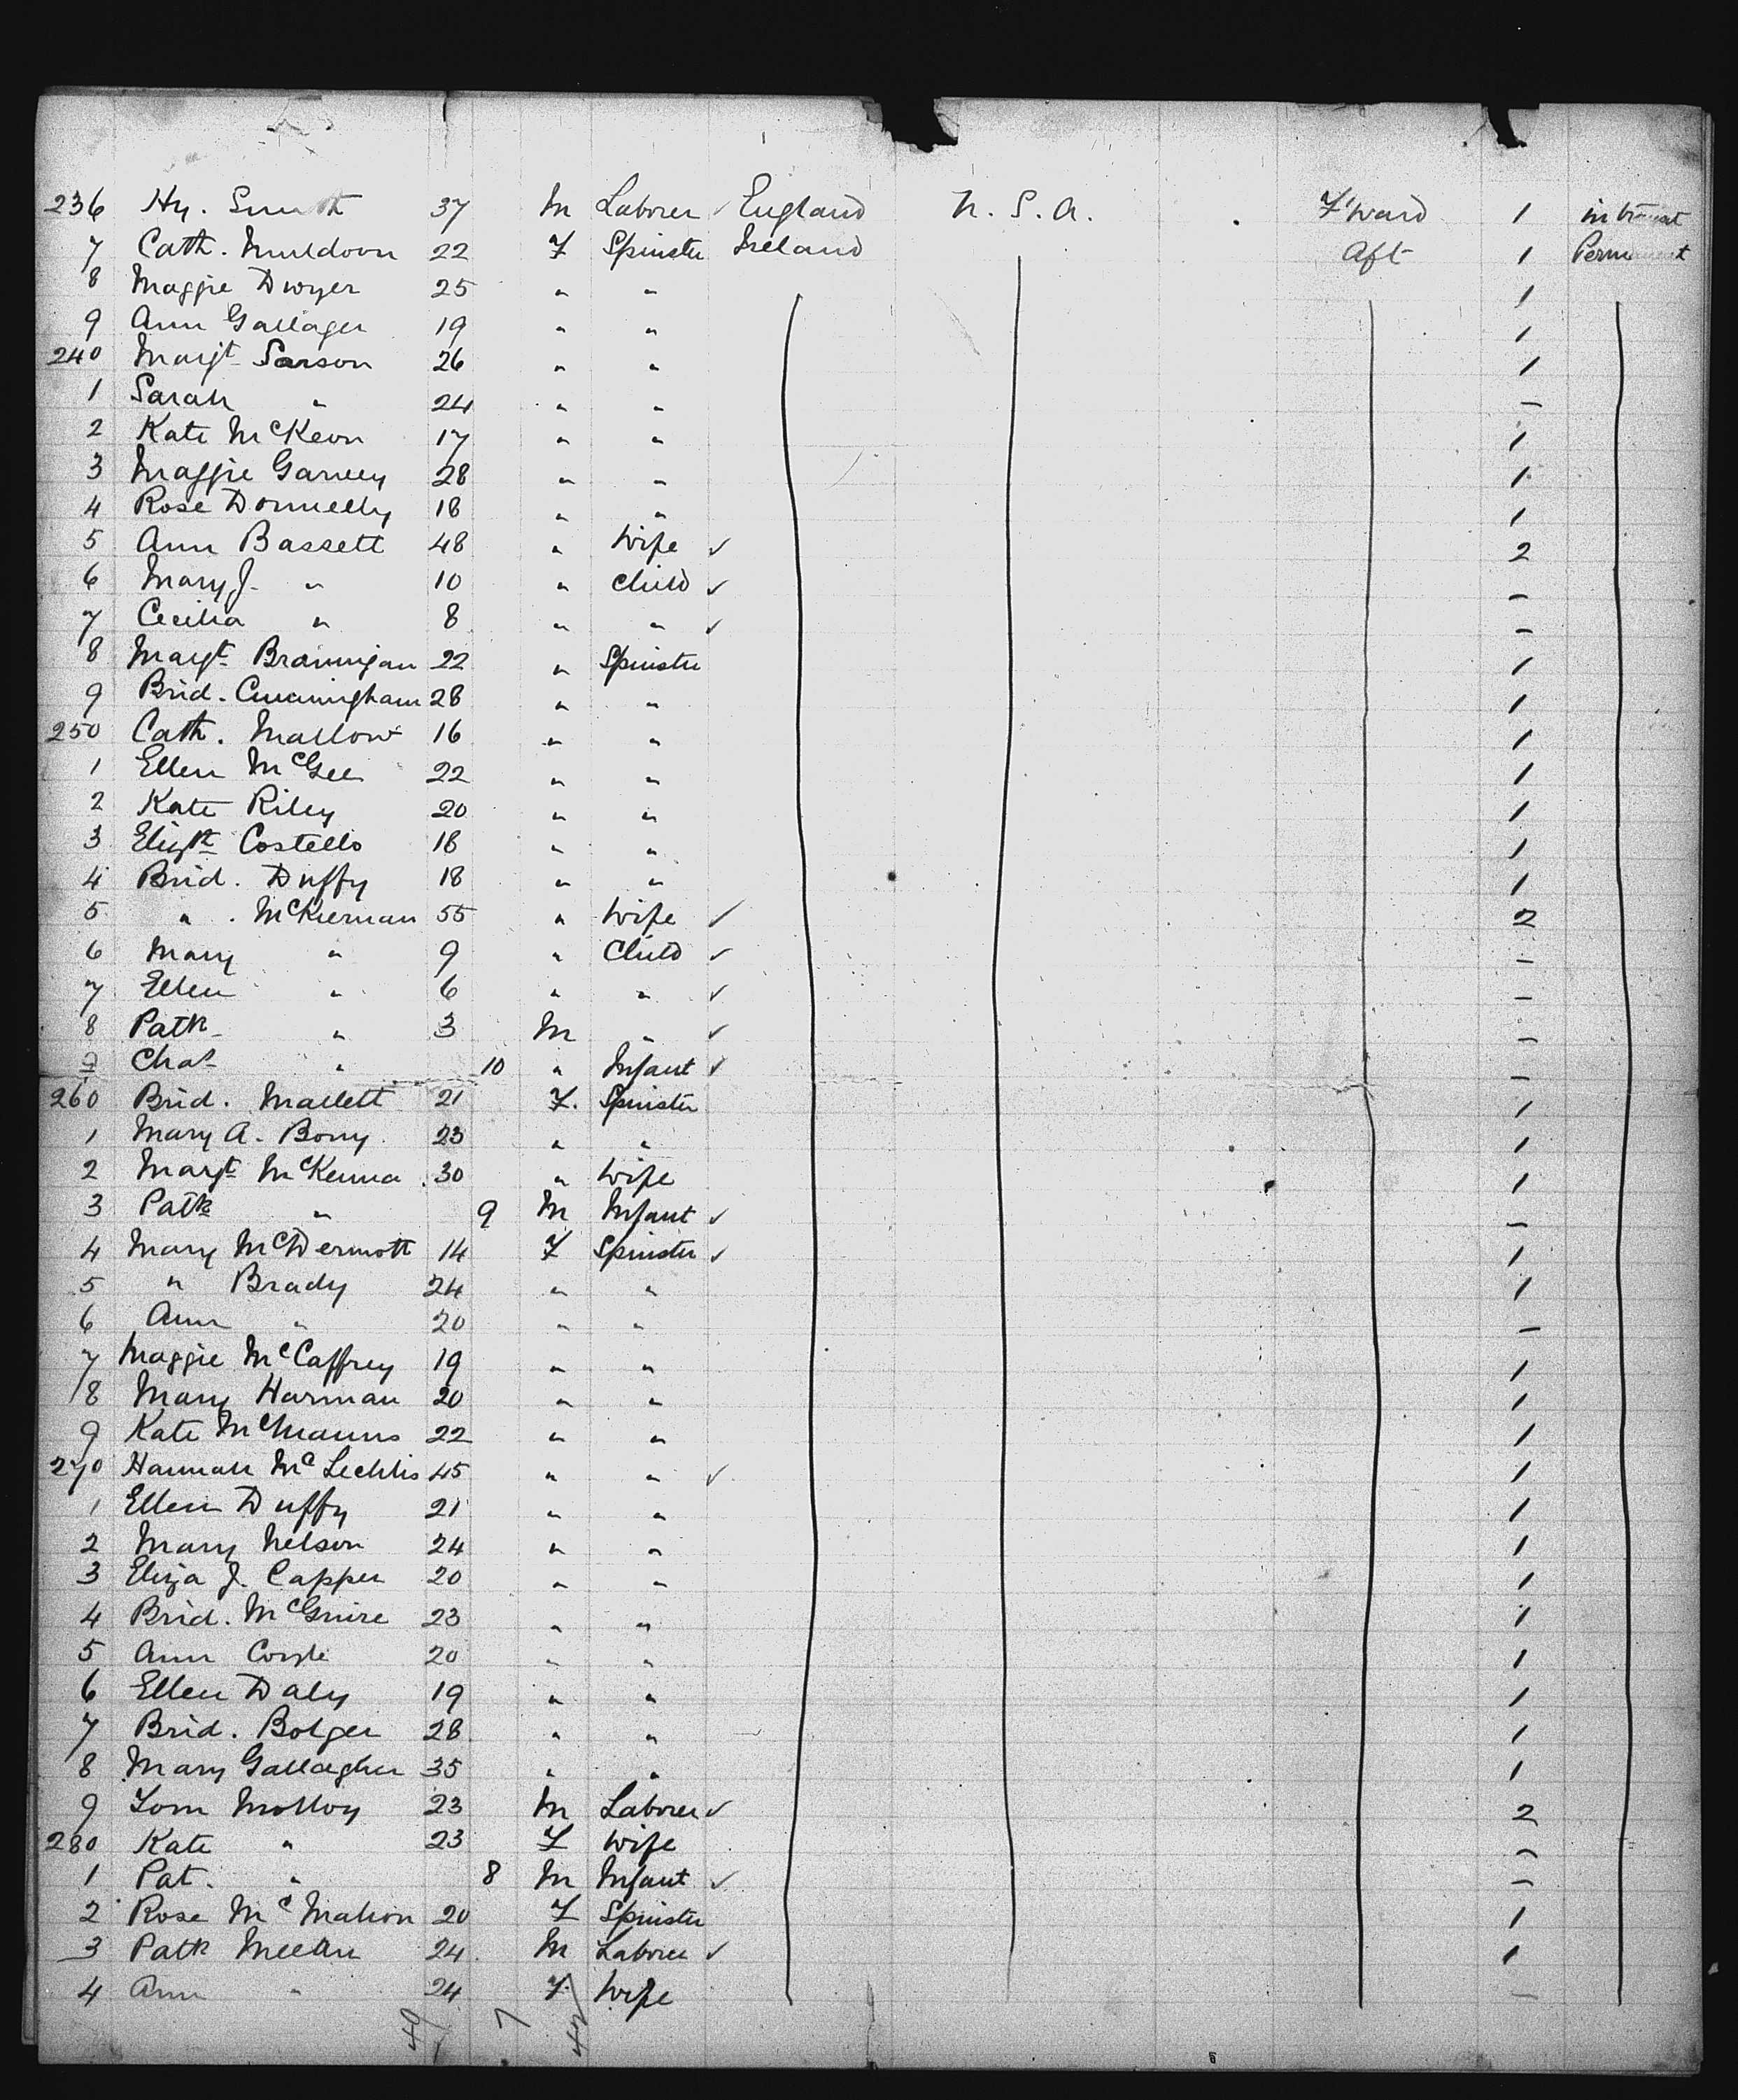 236 Hy. Smith 37 M Laborer ✓ England U. S. A. F'ward 1 in transit
7 Cath. Muldoon 22 F Spinster Ireland Aft 1 Permanent
8 Maggie Dwyer 25 " " 1
9 Ann Gallager 19 " " 1
240 Margt Sarson 26 " " 1
1 Sarah " 24 " " –
2 Kate McKeon 17 " " 1
3 Maggie Garvey 28 " " 1
4 Rose Donnelly 18 " " 1
5 Ann Bassett 48 " Wife ✓ 2
6 Mary J. " 10 " Child ✓ –
7 Cecilia " 8 " " ✓ –
8 Margt Brannigan 22 " Spinster 1
9 Brid. Cunningham 28 " " 1
250 Cath. Mallow 16 " " 1
1 Ellen McGee 22 " " 1
2 Kate Riley 20 " " 1
3 Elizth Costello 18 " " 1
4 Brid. Duffy 18 " " 1
5 " . McKiernan 55 " Wife ✓ 2
6 Mary " 9 " Child ✓ –
7 Ellen " 6 " " ✓ –
8 Patk " 3 M " ✓ –
9 Chas " 10 " Infant ✓ –
260 Brid. Mallett 21 F. Spinster 1
1 Mary A. Bony 23 " " 1
2 Margt McKenna 30 " Wife 1
3 Patk " 9 M Infant ✓ –
4 Mary McDermott 14 F Spinster ✓ 1
5 " Brady 24 " " 1
6 Ann " 20 " " –
7 Maggie McCaffrey 19 " " 1
8 Mary Harman 20 " " 1
9 Kate McManus 22 " " 1
270 Hannah Mc 45 " " ✓ 1
1 Ellen Duffy 21 " " 1
2 Mary Nelson 24 " " 1
3 Eliza J. Capper 20 " " 1
4 Brid. McGuire 23 " " 1
5 Ann Coyle 20 " " 1
6 Ellen Daly 19 " " 1
7 Brid. Bolger 28 " " 1
8 Mary Gallagher 35 " " 1
9 Tom Molloy 23 M Laborer ✓ 2
280 Kate " 23 F Wife –
1 Pat. " 8 M Infant ✓ –
2 Rose McMahon 20 F Spinster 1
3 Patk Meehan 24 M Laborer ✓ 1
4 Ann " 24 F. Wife –